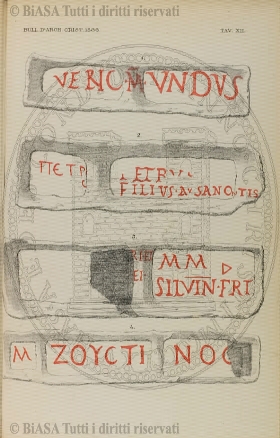 © BiASA Tutti i diritti riservati
BULL. D'ARCH. CRIST. 1886. TAV. XII.
1.
VERICMVNDVS
2.
PIETP ETR
FILIVS·AVSANC TIS
3.
MM
EI SILVIN·FRI
4.
M ZOYCTI NOC
© BiASA Tutti i diritti riservati